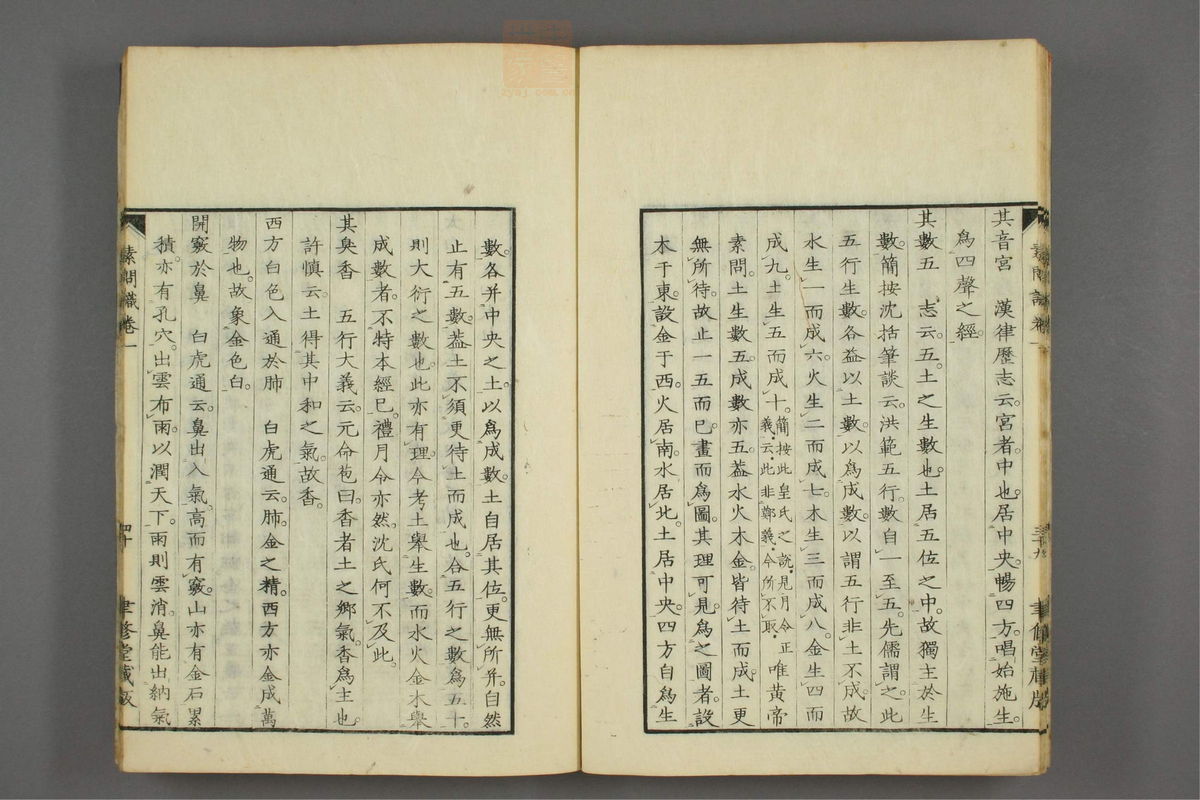 其音宮　漢律歷志云。宮者。中也。居中央。暢四方。唱始施生。
爲四聲之經。
其數五　志云。五。土之生數也。土居五位之中。故獨主於生
數。簡按沈括筆談云。洪範五行。數自一至五。先儒謂之。此
五行生數。各益以土數。以爲成數。以謂五行非土不成。故
水生一而成六。火生二而成七。木生三而成八。金生四而
成九。土生五而成十。簡按此皇氏之說。見月令正
義。云。此非鄭義。今所不取。唯黃帝
素問。土生數五。成數亦五。葢水火木金。皆待土而成。土更
無所待。故止一五而已。畫而爲圖。其理可見。爲之圖者。設
木于東。設金于西。火居南。水居北。土居中央。四方自爲生
素問識 卷一
三十九
數。各并中央之土。以爲成數。土自居其位。更無所并。自然
止有五數。葢土不須更待土而成也。合五行之數爲五十。
則大衍之數也。此亦有理。今考土舉生數。而水火金木舉
成數者。不特本經已。禮月令亦然。沈氏何不及此。
其臭香　五行大義云。元命苞曰。香者土之鄉氣。香爲主也。
許愼云。土得其中和之氣。故香。
西方白色入通於肺　白虎通云。肺。金之精。西方亦金成萬
物也。故象金色白。
開竅於鼻　白虎通云。鼻出入氣。高而有竅。山亦有金石累
積。亦有孔穴。出雲布雨。以潤天下。雨則雲消。鼻能出納氣
素問識 卷一
四十
聿修堂藏版